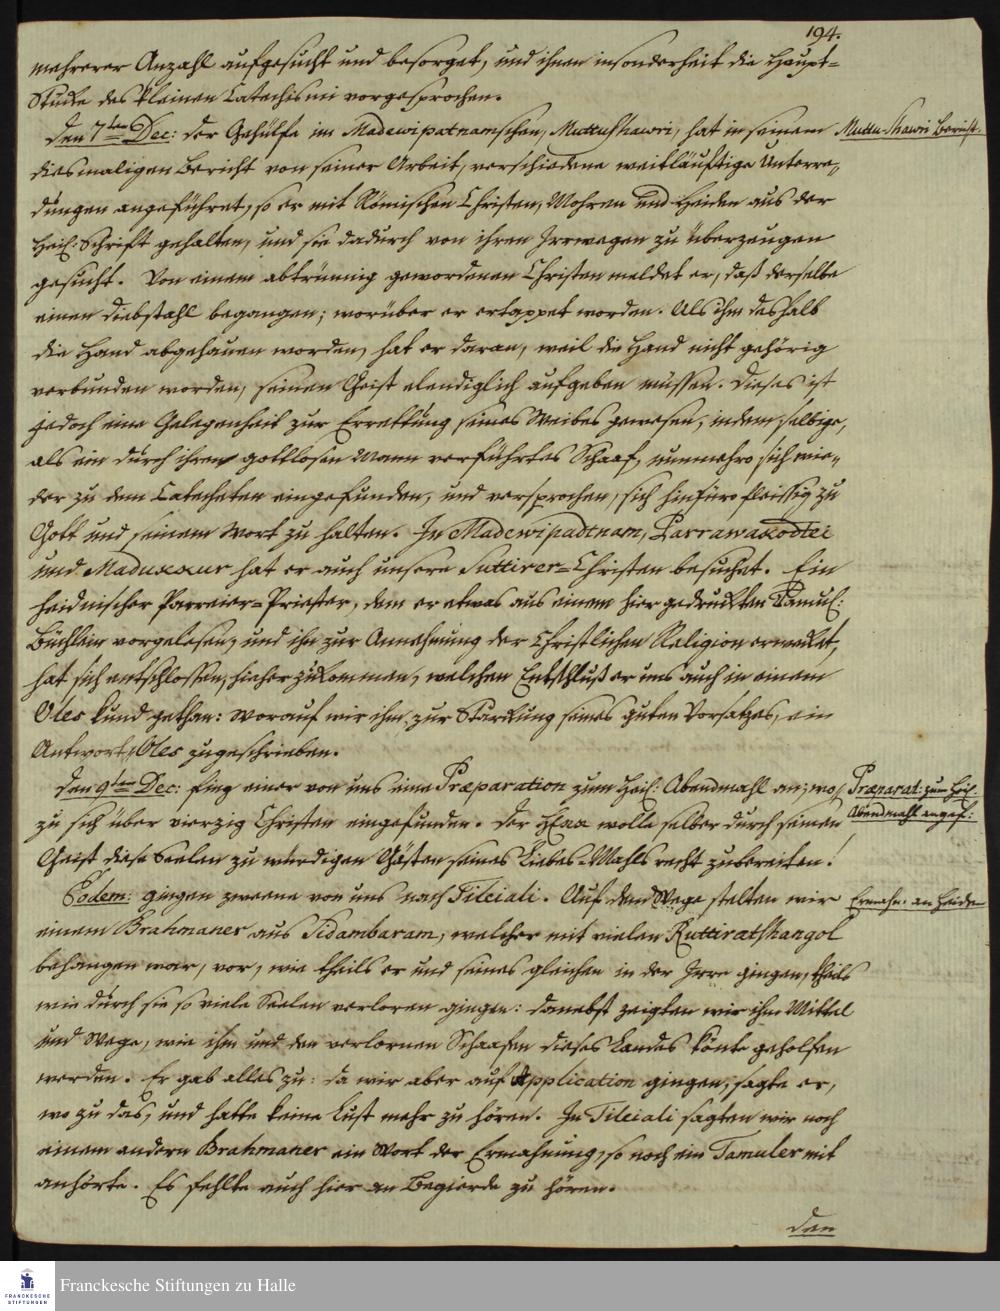 194.
mehrerer Anzahl aufgesucht und besorget, und ihnen insonderheit die Haupt-
Stücke des kleinen Catechismi vorgesprochen.
Den 7ten Dec: Der Gehülfe im Madewipatnamschen, Muttu Shawri, hat in seinem
Muttu-Shawri Bericht.
diesmaligen Bericht von seiner Arbeit, verschiedene weitläuftige Unterre-
dungen angeführet, so er mit Römischen Christen, Mohren und Heiden aus der
Heil: Schrift gehalten, und sie dadurch von ihren Irrwegen zu überzeugen
gesucht. Von einem abtrünnig gewordenen Christen meldet er, daß derselbe
einen Diebstahl begangen; worüber er ertappet worden. Als ihm deshalb
die Hand abgehauen worden, hat er daran, weil die Hand nicht gehörig
verbunden worden, seinen Geist elendiglich aufgeben müssen. Dieses ist
jedoch eine Gelegenheit zur Errettung seines Weibes gewesen, indem selbige,
als ein durch ihren gottlosen Mann verführtes Schaaf, nunmehro sich wie-
der zu dem Catecheten eingefunden, und versprochen, sich hinfüro fleissig zu
Gott und seinem Wort zu halten. In Madewipadtnam, Parrawakodtei
und Madukkur hat er auch unsere Suttirer-Christen besuchet. Ein
heidnischer Parreier-Priester, dem er etwas aus einem hier gedruckten Tamul:
Büchlein vorgelesen, und ihn zur Annehmung der Christlichen Religion erwecket,
hat sich entschlossen, hieher zu kommen, welchen Entschluß er uns auch in einem
Oles kund gethan: worauf wir ihm, zur Stärkung seines guten Vorsatzes, ein
Antwort-Oles zugeschrieben.
Den 9ten Dec: fing einer von uns eine Præparation zum Heil: Abendmahl an; wo-
Præparat: zum Heil.
Abendmahl angef:
zu sich über vierzig Christen eingefunden. Der HErr wolle selber durch seinen
Geist diese Seelen zu würdigen Gästen seines Liebes-Mahls recht zubereiten!
Eodem: gingen zweene von uns nach Tileiali. Auf dem Wege stelten wir
Ermahn. an Heiden
einem Brahmaner aus Sidambaram, welcher mit vielen Ruttiratshangol
behangen war, vor, wie theils er und seines gleichen in der Irre gingen, theils
wie durch sie so viele Seelen verloren gingen: danebst zeigten wir ihm Mittel
und Wege, wie ihm und den verlornen Schaafen dieses Landes könte geholfen
werden. Er gab alles zu: da wir aber auf Application gingen, sagte er,
wo zu das, und hatte keine Lust mehr zu hören. In Tileiali sagten wir noch
einem andern Brahmaner ein Wort der Ermahnung, so noch ein Tamuler mit
anhörte. Es fehlte auch hier an Begierde zu hören.
Den
FRANCKESCHE
STIFTUNGEN
Franckesche Stiftungen zu Halle